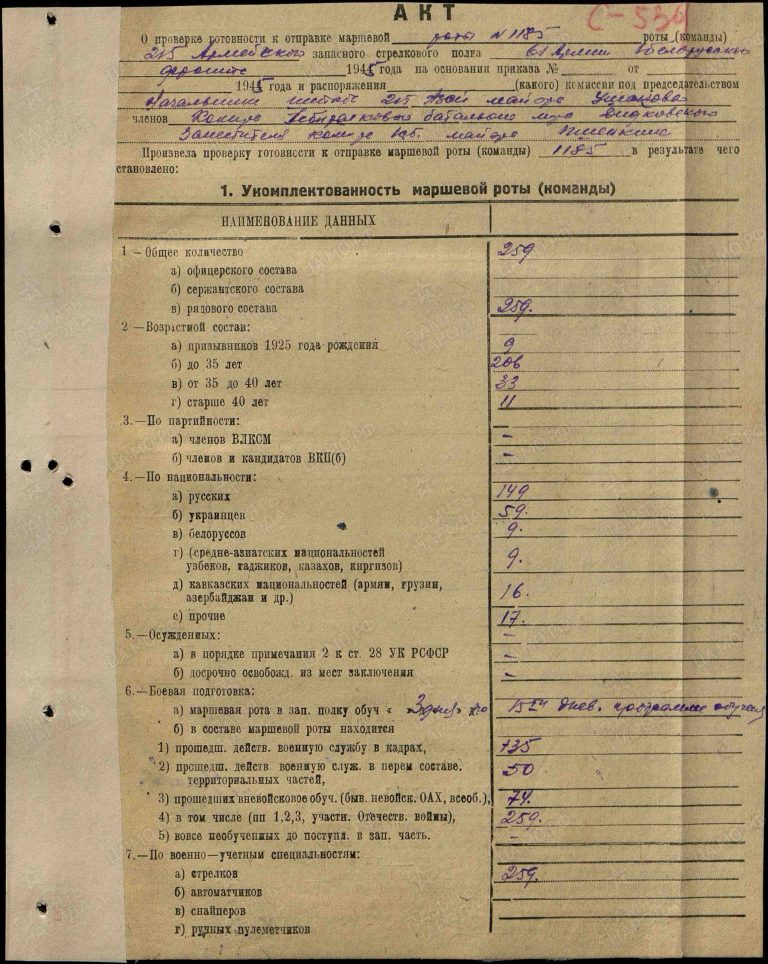 АКТ
С-534
О проверке готовности к отправке маршевой роты №1185 роты (команды)
215 Армейского запасного стрелкового полка 61 Армии Белорусского
фронта 1945 года на основании приказа № от
1945 года и распоряжения (какого) комиссии под председательством
Начальника штаба 215 майора
членов батальона
Заместителя майора
Произвела проверку готовности к отправке маршевой роты (команды) 1185 в результате чего
становлено:
1. Укомплектованность маршевой роты (команды)
НАИМЕНОВАНИЕ ДАННЫХ
1 — Общее количество 259
а) офицерского состава
б) сержантского состава
в) рядового состава 259.
2 — Возрастной состав:
а) призывников 1925 года рождения 9
б) до 35 лет 206
в) от 35 до 40 лет 33
г) старше 40 лет 11
3.—По партийности: –
а) членов ВЛКСМ –
б) членов и кандидатов ВКП(б) –
4.—По национальности:
а) русских 149
б) украинцев 59.
в) белоруссов 9.
г) (средне-азиатских национальностей
узбеков, таджиков, казахов, киргизов) 9.
д) кавказских национальностей (армян, грузин,
азербайджан и др.) 16.
е) прочие 17.
5.—Осужденных: –
а) в порядке примечания 2 к ст. 28 УК РСФСР –
б) досрочно освобожд. из мест заключения –
6.—Боевая подготовка:
а) маршевая рота в зап. полку обуч « 3 дня » по 15 днев. программе обучения
б) в составе маршевой роты находится
1) прошедш. действ. военную службу в кадрах, 135
2) прошедш. действ военную служ. в перем составе.
территориальных частей, 50
3) прошедших вневойсковое обуч. (быв. невойск. ОАХ, всеоб.), 74.
4) в том числе (пп 1,2,3, участн. Отечеств. войны), 259.
5) вовсе необученных до поступл. в зап. часть. –
7.—По военно—учетным специальностям:
а) стрелков 259.
б) автоматчиков
в) снайперов
г) ручных пулеметчиков